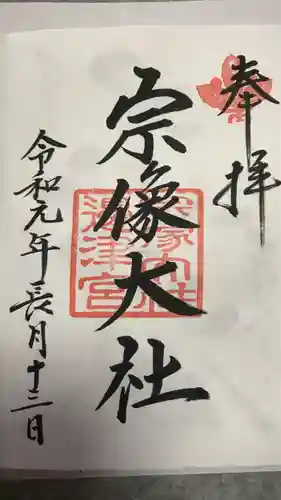 奉拝
宗像大社
宗像大社
邊津宮
令和元年長月十三日